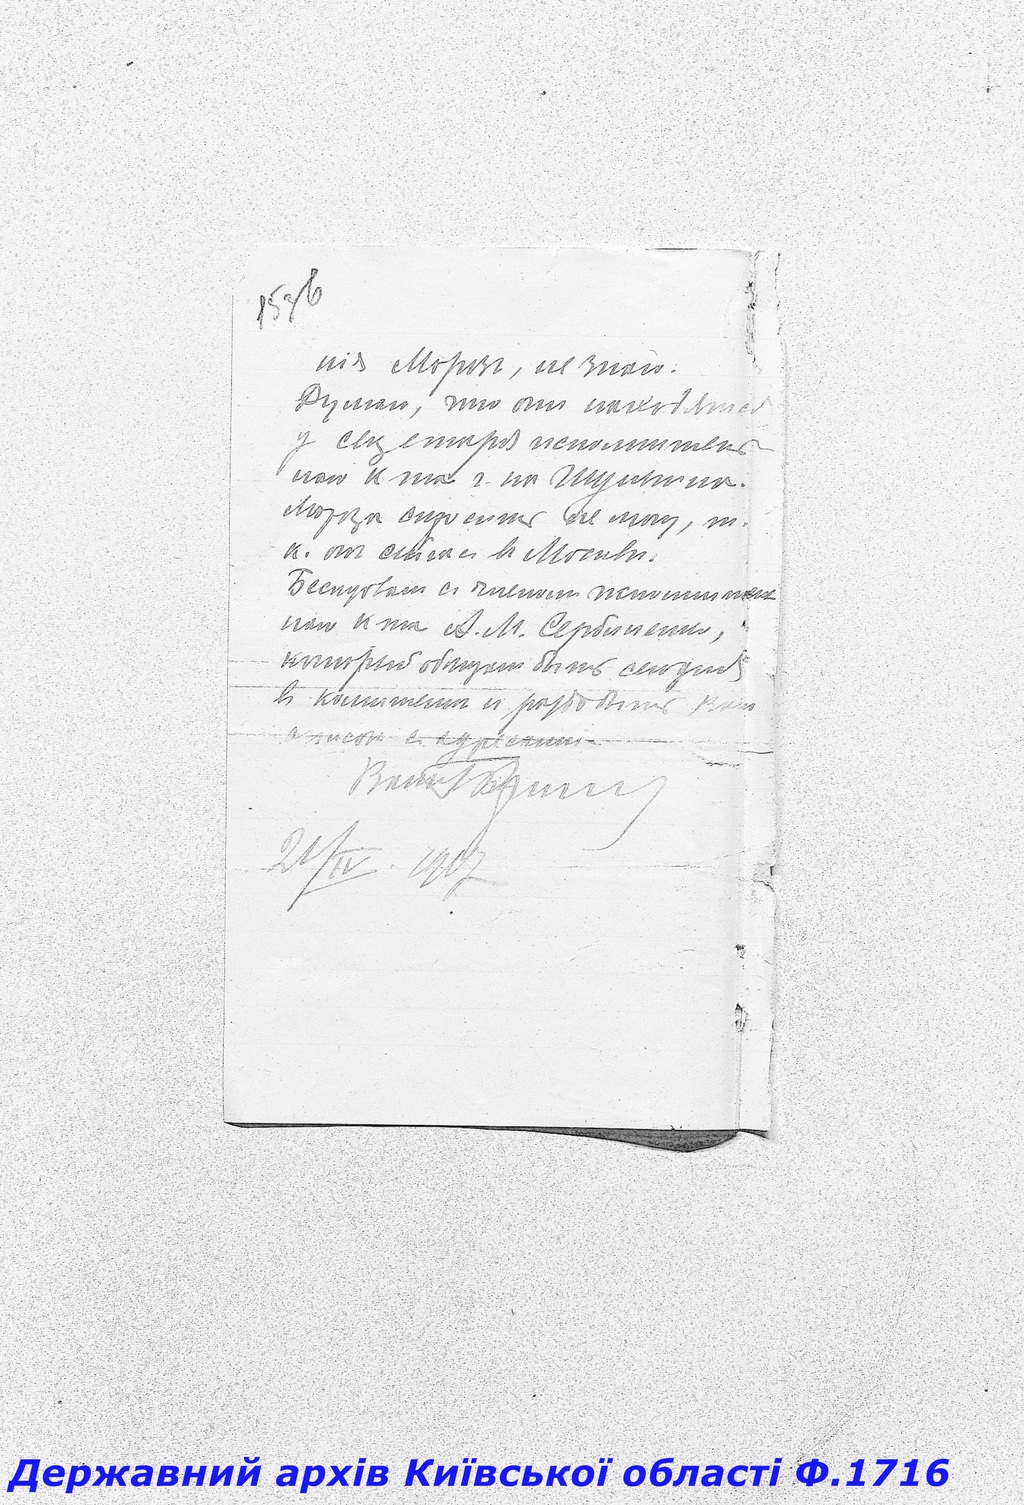 153б
нія Мороз, не знаю.
Думаю, что они находятся
у секретаря исполнитель-
наго К-та г-на Шульгина.
Мороза спросить не могу, т.
к. он сейчас в Москве.
Беседовал с членом исполнитель
наго К-та А. М. Сербиненко,
который обещал быть сегодня
в комитете и раздобыть Вам
список с адресами.
Ваш
21/IV. 1907
Державний архів Київської області Ф.1716